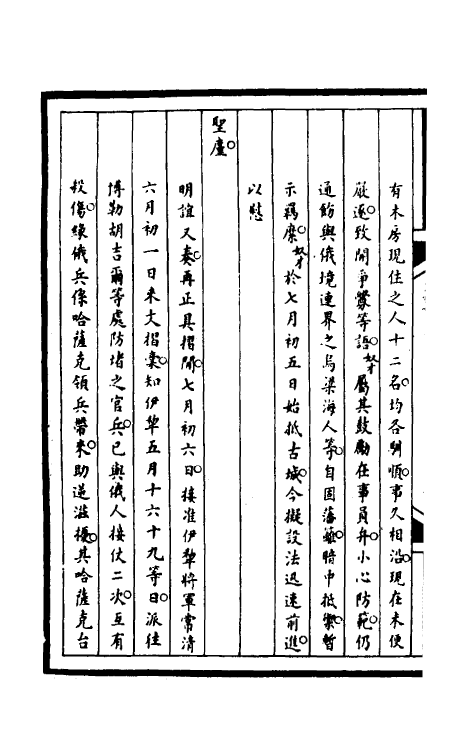 有木房現住之人十二名。均各馴順。事久相沿。現在未便
嚴逐。致開爭釁等語。奴才屬其鼓勵在事員弁。小心防範。仍
通飭與俄境連界之烏梁海人等。自固藩籬。暗中抵禦。暫
示羈縻。奴才於七月初五日始抵古城。今擬設法迅速前進。
以慰
聖廑。
明誼又奏。再正具摺間。七月初六日。接准伊犂將軍常清
六月初一日來文摺稾。知伊犂五月十六十九等日。派往
博勒胡吉爾等處防堵之官兵。已與俄人接仗二次。互有
殺傷。緣俄兵係哈薩克領兵帶來。助逆滋擾。其哈薩克台